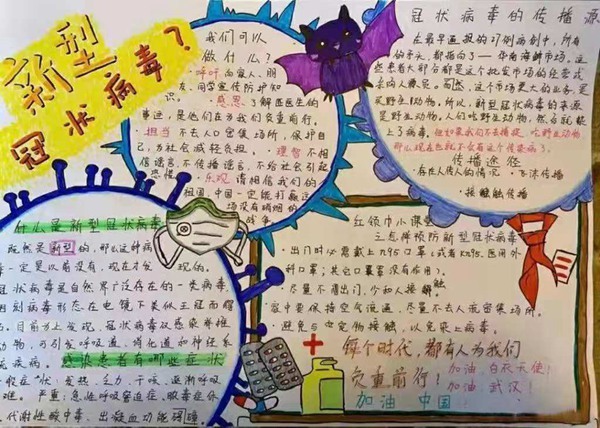 新型
冠状病毒？
我们可以
做什么？
呼吁向家人、朋
友、同学宣传防护知
识。 感恩：了解医医生的
事迹，是他们在为我们负重前行。
担当 不去人口密集场所，保护自
己，为社会减轻负担。 理智 不相
信谣言，不传播谣言，不给社会引起
恐慌。 乐观 请相信我们的
祖国，中国一定能打赢这
场没有硝烟的
战争
冠状病毒的传播源
在最早通报的27例病例中，所有
的矛头，都指向了一华南海鲜市场，这
些患者大部分都是这个批发市场的经营或
走向人购员。
是野生动物，所以，新型冠状病毒的来源
是野生动物。人们吃野生动物，然后就染
上了病毒。但如果我们不去捕捉，吃野生动物
那么现在也就不会有这个传染病了。
传播途径
存在人传人的情况 ·飞沫传播
·接触触传播
什么是新型冠状病毒
既然是新型的，那么这种病
毒一定是以前没有，现在才发现的。
冠状病毒是自然界广泛存在的一类病毒，
因刺病毒形态在电镜下类似王冠而得
名。目前为止发现，冠状病毒仅感染脊椎
动物，可引发呼吸道、消化道和神经系
统疾病。 感染患者有哪些症状
一般症"状：发热、乏力、干咳、逐渐呼吸
困难。 严重：急性呼吸窘迫症、脓毒症休
克、代谢性酸中毒、出凝血功能障碍
红领巾小课堂
三怎样预防新型冠状病毒
·出门时必需戴上n95口罩（或者KN95、医用外
科口罩；其它口罩害没有作用）。
·尽量不得出门，少和人接触。
·家中要保持空气流通，尽量不去人流密集场所。
避免与宠物接触，以免染上病毒。
每个时代，都有人为我们
负重前行！
加油 白衣天使！
加油 武汉！
加油 中国